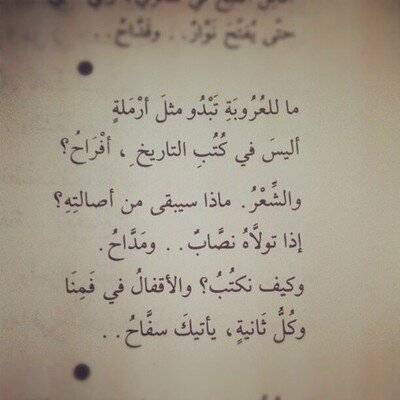 حتّى يُفتّحَ نَوّارٌ.. وقَدّاحُ..
ما للعُرُوبَةِ تَبْدُو مثلَ أرْمَلةٍ
أليسَ في كُتُبِ التاريخِ، أفْرَاحُ؟
والشِّعْرُ. ماذا سيبقى من أصالتِهِ؟
إذا تولاَّهُ نصَّابٌ.. ومَدَّاحُ.
وكيف نكتُبُ؟ والأقفالُ في فَمِنَا
وكُلُّ ثَانيةٍ، يأتيكَ سفَّاحُ..